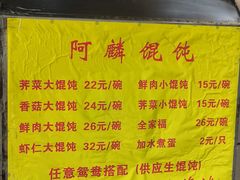 阿麟馄饨
荠菜大馄饨 22元/碗 鲜肉小馄饨 15元/碗
香菇大馄饨 24元/碗 荠菜小馄饨 15元/碗
鲜肉大馄饨 26元/碗 全家福 26元/碗
虾仁大馄饨 32元/碗 加水煮蛋 2元/只
任意鸳鸯搭配（供应生馄饨）